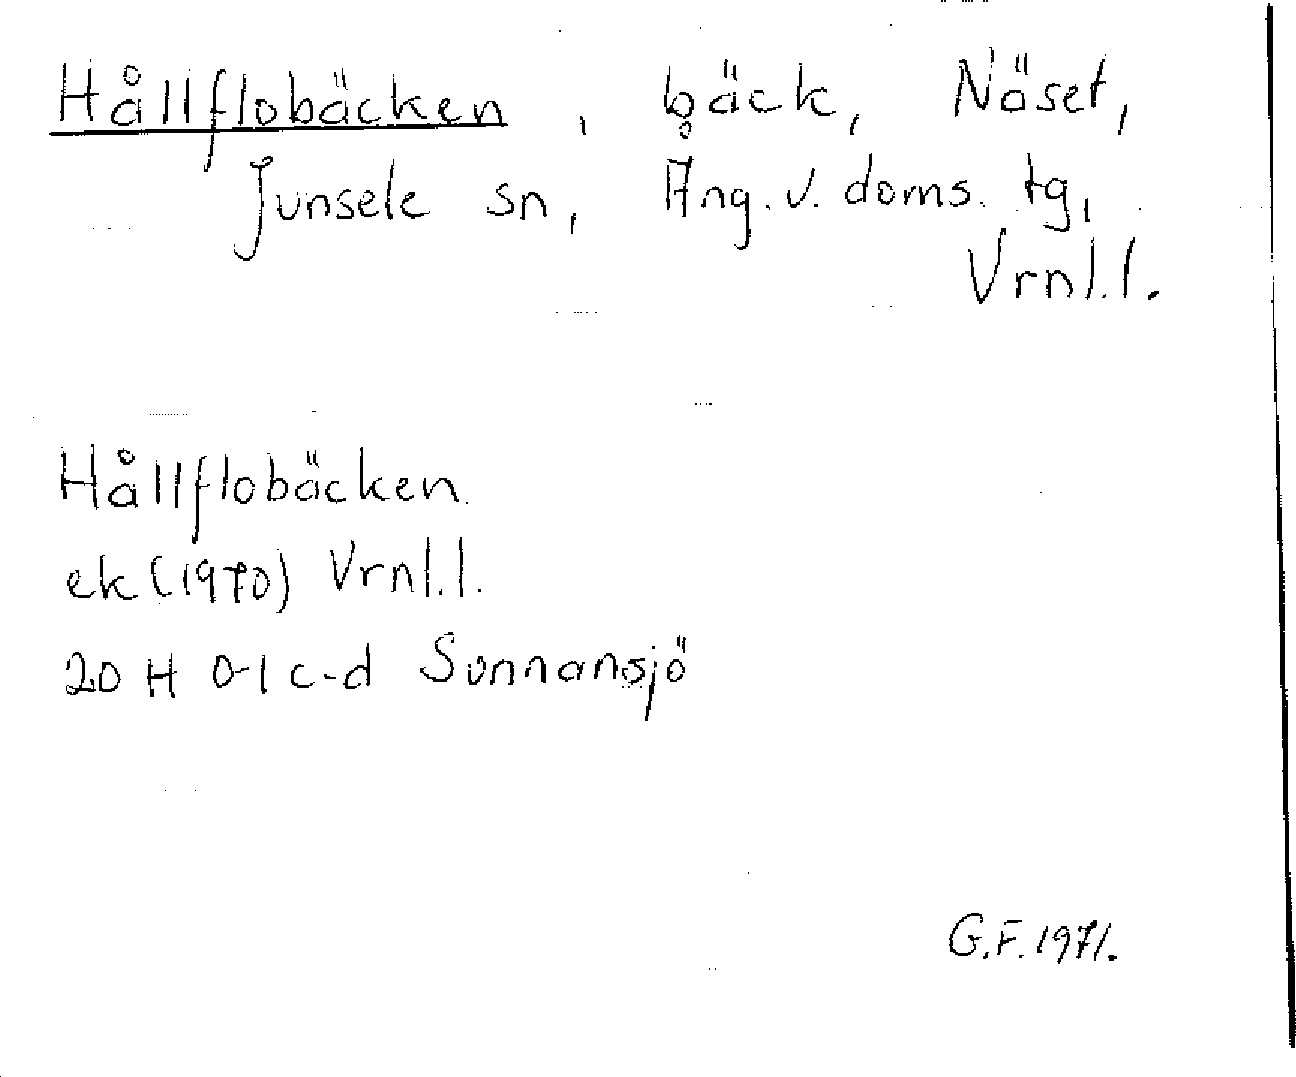 Hållflobäcken, bäck, Näset,
Junsele sn, Ång. v. doms. tg,
Vrnl.l.
Hållflobäcken
ek (1970) Vrnl.l.
20 H 0-1 c-d Sunnansjö
G.F. 1971.